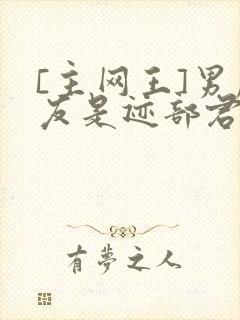 [主网王]男
友是迹部君
有夢之人